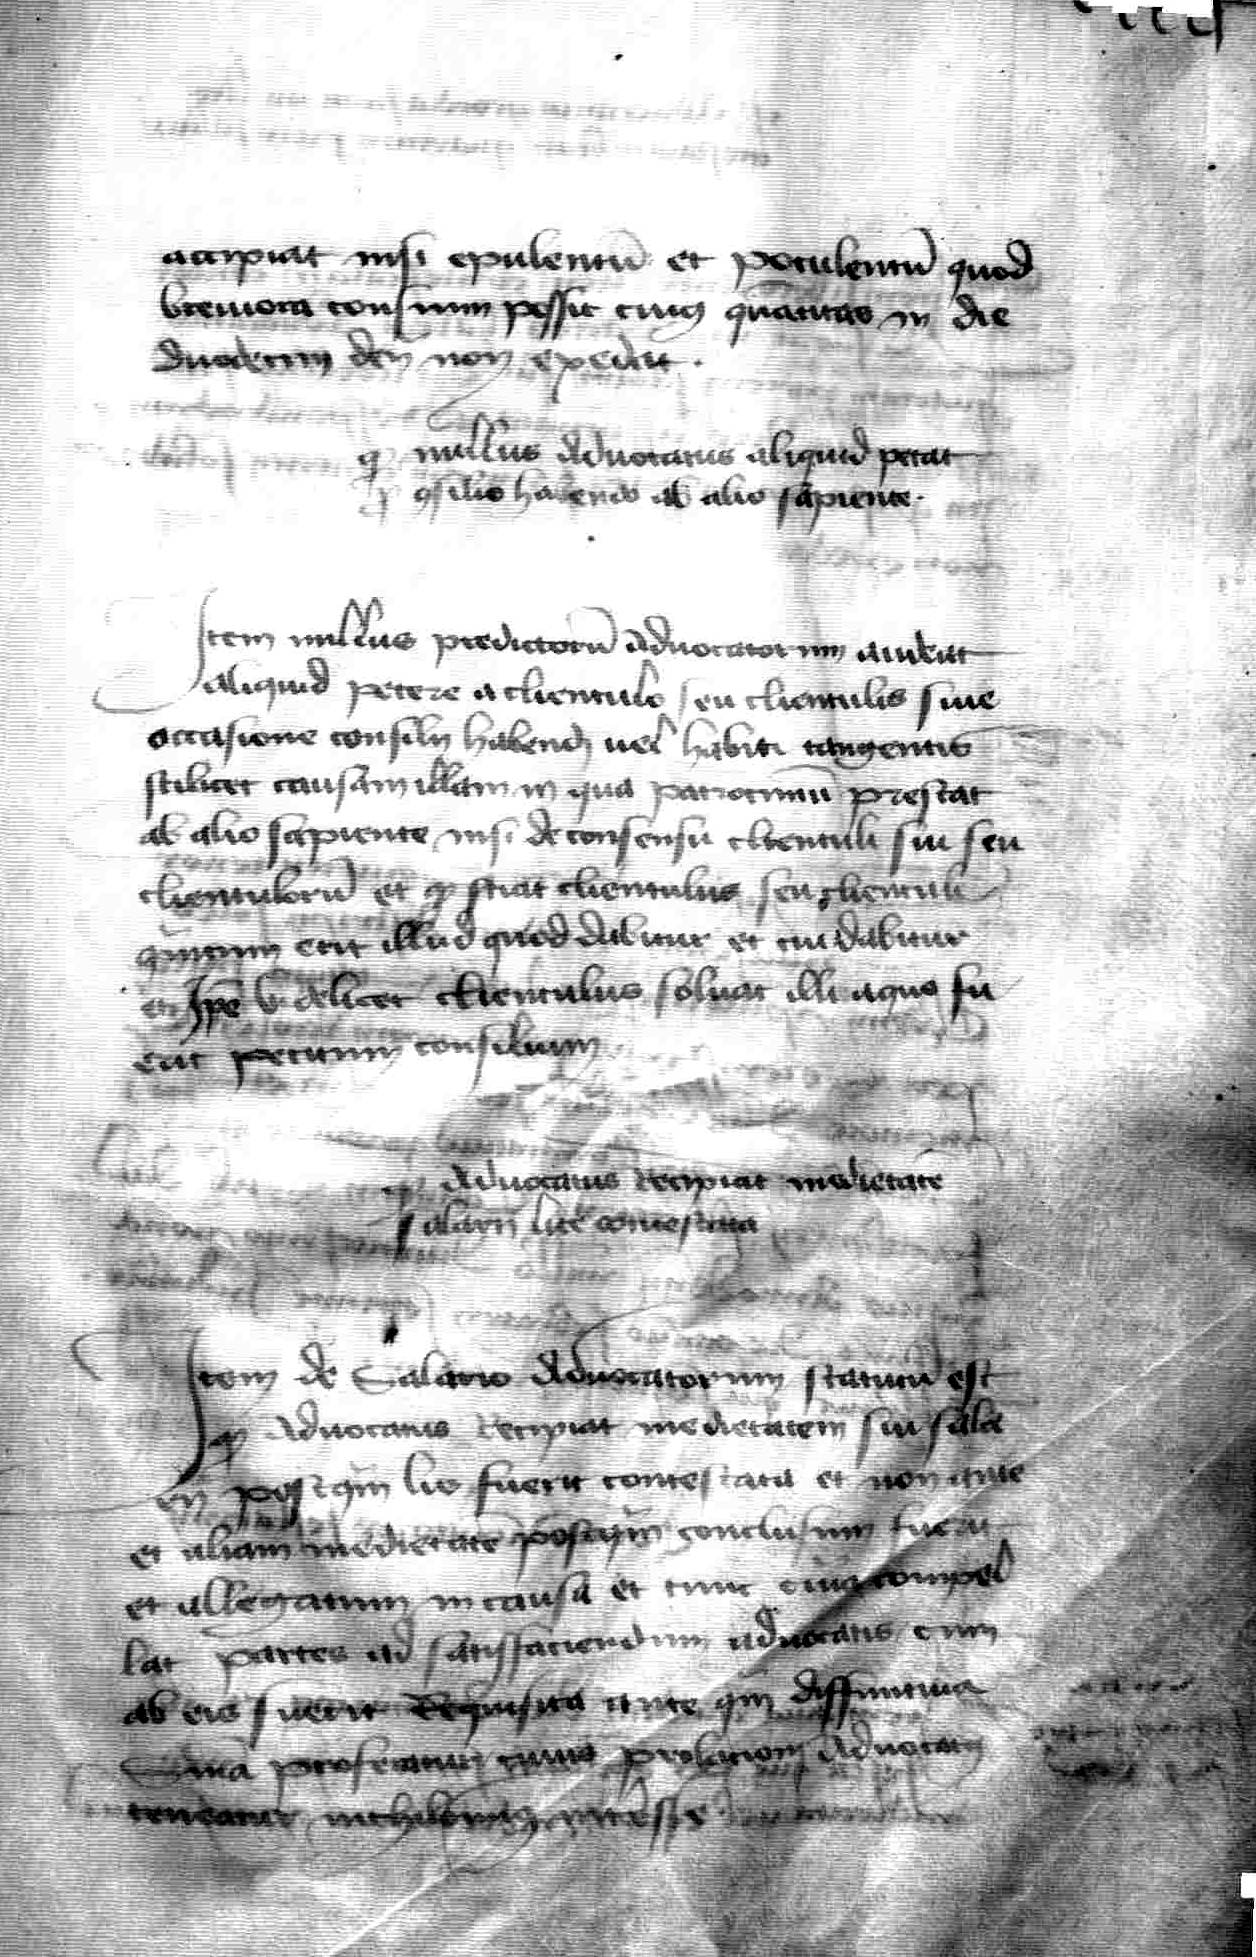 accipiat nisi epulentũ et potulentũ quod
brevi ora consumi possit cuiꝰ quãtitas in die
duodecim deñ non excedat.
ꝙ nullus advocatus aliquid petat
ꝓ ꝯsilio habendo ab alio sapiente.
Item nullus predictorũ advocatorum audeat
aliquid petere a clientulo seu clientulis sive
occasione consilii habendi vel habiti tangentis
scilicet causam illam in qua patrociniũ prestat
ab alio sapiente nisi de consensu clientuli sui seu
clientulorũ et ꝙ sciat clientulus seu clientuli
quãtum erit illud quod dabitur et cui dabitur
et Ip̃e videlicet clientulus solvat illi a quo fu
erit petitum consilium
ꝙ advocatus recipiat medietatẽ
salarii lite contestata
Item de Salario advocatorum statutũ est
ꝙ advocatus recipiat medietatem sui sala
rii postqm̃ lis fuerit contestata et non ante
et aliam medietatẽ postqm̃ conclusum fuerit
et allegatum in causa et tunc compel
lat partes ad satisfaciendum advocatis cum
ab eis fuerit requisita ante qm̃ diffinitiva
Sñia proferatur prolationi advocatꝰ
teneatur nichilominꝰ interesse